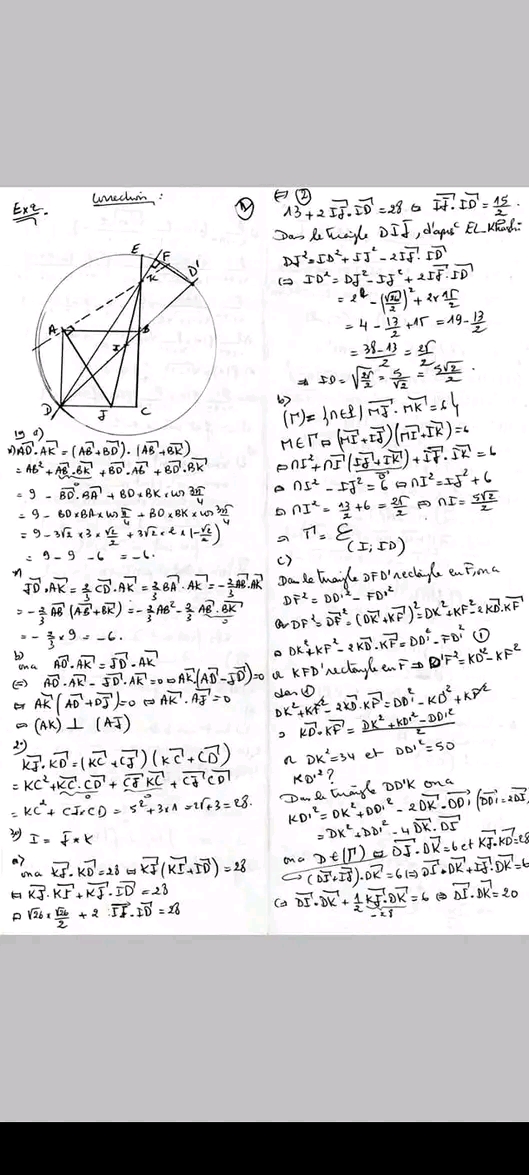 Correction :
Ex 2.
E
F
D'
K
A
B
I
D
J
C
1°) a)
*) AD⃗.AK⃗ = (AB⃗+BD⃗).(AB⃗+BK⃗)
= AB² + AB⃗.BK⃗ + BD⃗.AB⃗ + BD⃗.BK⃗
0
= 9 - BD⃗.BA⃗ + BD×BK×cos 3π/4
= 9 - BD×BA×cos π/4 + BD×BK×cos 3π/4
= 9 - 3√2 × 3 × √2/2 + 3√2 × 2 × (-√2/2)
= 9 - 9 - 6 = -6.
*) JD⃗.AK⃗ = 2/3 CD⃗.AK⃗ = 2/3 BA⃗.AK⃗ = -2/3 AB⃗.AK⃗
= -2/3 AB⃗(AB⃗+BK⃗) = -2/3 AB² - 2/3 AB⃗.BK⃗
0
= -2/3 × 9 = -6.
b)
ona AD⃗.AK⃗ = JD⃗.AK⃗
⇔ AD⃗.AK⃗ - JD⃗.AK⃗ = 0 ⇔ AK⃗(AD⃗-JD⃗)=0
⇔ AK⃗(AD⃗+DJ⃗)=0 ⇔ AK⃗.AJ⃗ = 0
⇔ (AK) ⊥ (AJ)
2°)
KJ⃗.KD⃗ = (KC⃗+CJ⃗)(KC⃗+CD⃗)
= KC² + KC⃗.CD⃗ + CJ⃗.KC⃗ + CJ⃗.CD⃗
0 0
= KC² + CJ×CD = 5²+3×1 = 25+3 = 28.
3°) I = J * K
a)
ona KJ⃗.KD⃗ = 28 ⇔ KJ⃗(KI⃗+ID⃗) = 28
⇔ KJ⃗.KI⃗ + KJ⃗.ID⃗ = 28
⇔ √26 × √26/2 + 2 IJ⃗.ID⃗ = 28
⇔ ②
13 + 2 IJ⃗.ID⃗ = 28 ⇔ IJ⃗.ID⃗ = 15/2.
Dans le triangle DIJ, d'après EL-Khashi
DJ² = ID² + IJ² - 2IJ⃗.ID⃗
⇔ ID² = DJ² - IJ² + 2IJ⃗.ID⃗
= 2² - (√26/2)² + 2×15/2
= 4 - 13/2 + 15 = 19 - 13/2
= (38-13)/2 = 25/2
⇒ ID = √25/2 = 5/√2 = 5√2/2.
b)
(Γ) = {M∈P / MJ⃗.MK⃗ = 6}
M∈Γ ⇔ (MI⃗+IJ⃗)(MI⃗+IK⃗) = 6
⇔ MI² + MI⃗(IJ⃗+IK⃗) + IJ⃗.IK⃗ = 6
⇔ MI² - IJ² = 6 ⇔ MI² = IJ² + 6
⇔ MI² = 13/2 + 6 = 25/2 ⇔ MI = 5√2/2
⇒ Γ = ℰ(I; ID)
c)
Dans le triangle DFD' rectangle en F, ona
DF² = DD'² - FD'²
Or DF² = DF⃗² = (DK⃗+KF⃗)² = DK²+KF²-2KD⃗.KF⃗
⇔ DK²+KF² - 2KD⃗.KF⃗ = DD'² - FD'² ①
or KFD' rectangle en F ⇒ D'F² = KD'² - KF²
DK²+KF² - 2KD⃗.KF⃗ = DD'² - KD'² + KF²
⇒ KD⃗.KF⃗ = (DK² + KD'² - DD'²)/2
or DK² = 34 et DD'² = 50
KD'² ?
Dans le triangle DD'K ona
KD'² = DK² + DD'² - 2DK⃗.DD'⃗ (DD'⃗ = 2DI⃗)
= DK² + DD'² - 4 DK⃗.DI⃗
ona D∈(Γ) ⇔ DJ⃗.DK⃗ = 6 et KJ⃗.KD⃗ = 28
(DI⃗+IJ⃗).DK⃗ = 6 ⇔ DI⃗.DK⃗ + IJ⃗.DK⃗ = 6
⇔ DI⃗.DK⃗ + 1/2 KJ⃗.DK⃗ = 6 ⇔ DI⃗.DK⃗ = 20
-28